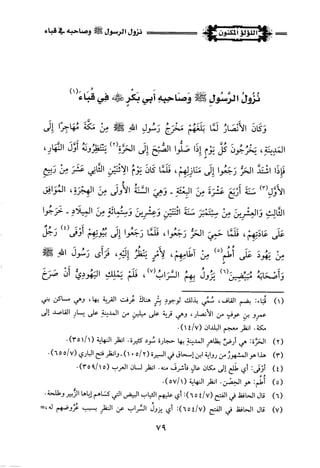 اللؤلؤ المكنون
نزول الرسول ﷺ وصاحبه في قباء
نُزُولُ الرَّسُولِ ﷺ وَصَاحِبِهِ أَبِي بَكْرٍ فِي قُبَاءَ(١)
وَكَانَ الْأَنْصَارُ لَمَّا بَلَغَهُمْ مَخْرَجُ رَسُولِ اللهِ ﷺ مِنْ مَكَّةَ مُهَاجِرًا إِلَى
المَدِينَةِ، يَخْرُجُونَ كُلَّ يَوْمٍ إِذَا صَلَّوُا الصُّبْحَ إِلَى الحَرَّةِ(٢) يَنْتَظِرُونَهُ أَوَّلَ النَّهَارِ،
فَإِذَا اشْتَدَّ الحَرُّ رَجَعُوا إِلَى مَنَازِلِهِمْ، فَلَمَّا كَانَ يَوْمُ الِاثْنَيْنِ الثَّانِي عَشَرَ مِنْ رَبِيعٍ
الأَوَّلِ(٣) سَنَةَ أَرْبَعَ عَشْرَةَ مِنَ البِعْثَةِ - وَهِيَ السَّنَةُ الأُولَى مِنَ الهِجْرَةِ، المُوَافِقِ
الثَّالِثَ وَالعِشْرِينَ مِنْ سِبْتَمْبَرَ سَنَةَ اثْنَتَيْنِ وَعِشْرِينَ وَسِتُّمِائَةٍ مِنَ المِيلَادِ - خَرَجُوا
عَلَى عَادَتِهِمْ، فَلَمَّا حَمِيَ الحَرُّ رَجَعُوا، فَلَمَّا رَجَعُوا إِلَى بُيُوتِهِمْ أَوْفَى(٤) رَجُلٌ
مِنْ يَهُودَ عَلَى أُطُمٍ(٥) مِنْ آطَامِهِمْ، لِأَمْرٍ يَنْظُرُ إِلَيْهِ، فَرَأَى رَسُولَ اللهِ ﷺ
وَأَصْحَابَهُ مُبَيِّضِينَ(٦) يَزُولُ بِهِمُ السَّرَابُ(٧)، فَلَمْ يَمْلِكِ اليَهُودِيُّ أَنْ صَرَخَ
(١) قُباء: بضم القاف، سُمي بذلك لوجود بئر هناك عُرفت القرية بها، وهي مساكن بني
عمرو بن عوف من الأنصار، وهي قرية على ميلين من المدينة على يسار القاصد إلى
مكة. انظر معجم البلدان (١٤/٧).
(٢) الحَرَّة: هي أرض بظاهر المدينة بها حجارة سُود كثيرة. انظر النهاية (٣٥١/١).
(٣) هذا هو المشهور من رواية ابن إسحاق في السيرة (١٠٥/٢)، وانظر فتح الباري (٦٥٥/٧).
(٤) أَوْفَى: أي طلع إلى مكان عال فأشرف منه. انظر لسان العرب (٣٥٩/١٥).
(٥) أُطُم: هو الحصن. انظر النهاية (٥٧/١).
(٦) قال الحافظ في الفتح (٦٥٤/٧): أي عليهم الثياب البيض التي كساهم إياها الزُّبير وطلحة.
(٧) قال الحافظ في الفتح (٦٥٤/٧): أي يزول السراب عن النظر بسبب عُروضهم له
٧٩